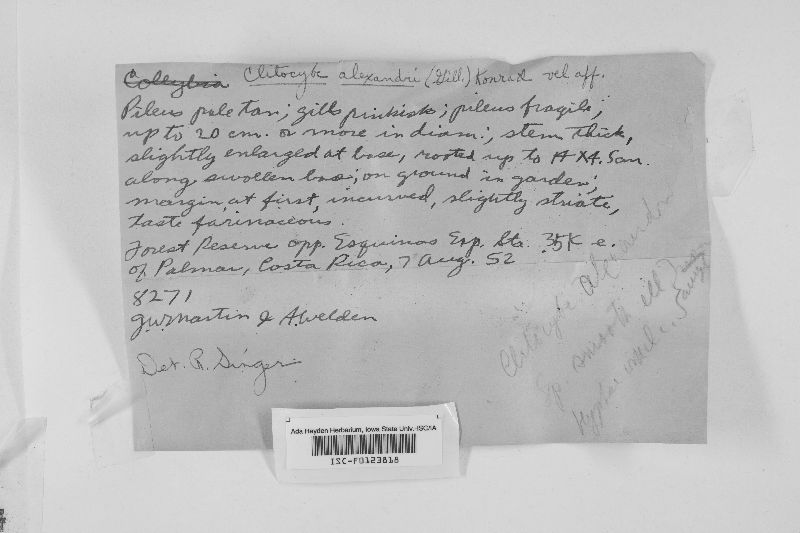 Collybia Clitocybe alexandri (Gill.) Konrad vel aff.
Pileus pale tan; gills pinkish; pileus fragile;
up to 20 cm. or more in diam.; stem thick,
slightly enlarged at base, rooted up to
along swollen base; on ground in garden;
margin at first, incurved, slightly striate,
taste farinaceous.
Forest Reserve opp. Esquinas Exp. Sta. 35K e.
of Palmar, Costa Rica, 7 Aug. 52
8271
G.W. Martin & A. Welden
Det. R. Singer
Clitocybe alexandri
Sp. smooth ell
Hyphae
Ada Hayden Herbarium, Iowa State Univ.-ISC/IA
ISC-F0123818